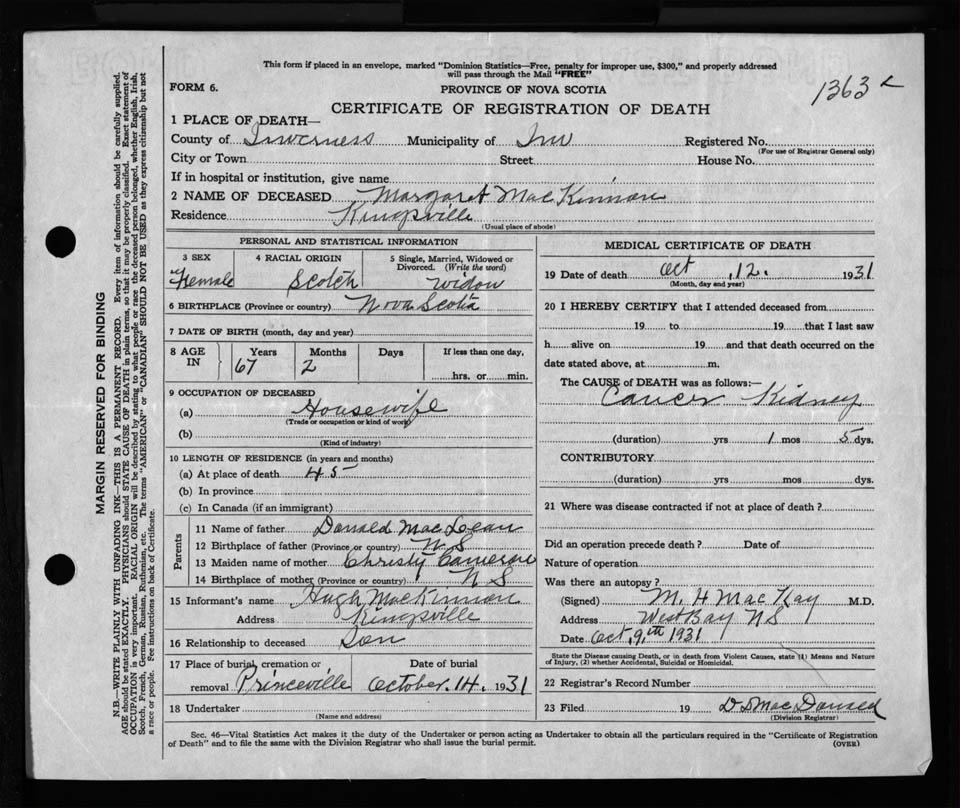 This form if placed in an envelope, marked "Dominion Statistics—Free, penalty for improper use, $300," and properly addressed
will pass through the Mail "FREE"
FORM 6.
PROVINCE OF NOVA SCOTIA
1363
CERTIFICATE OF REGISTRATION OF DEATH
1 PLACE OF DEATH—
County of Inverness Municipality of Inv Registered No.
(For use of Registrar General only)
City or Town Street House No.
If in hospital or institution, give name
2 NAME OF DECEASED Margaret MacKinnon
Residence Kingsville
(Usual place of abode)
PERSONAL AND STATISTICAL INFORMATION
3 SEX 4 RACIAL ORIGIN 5 Single, Married, Widowed or
Divorced. (Write the word)
Female Scotch widow
6 BIRTHPLACE (Province or country) Nova Scotia
7 DATE OF BIRTH (month, day and year)
8 AGE IN Years Months Days If less than one day,
67 2
hrs. or min.
9 OCCUPATION OF DECEASED
(a) Housewife
(Trade or occupation or kind of work)
(b)
(Kind of industry)
10 LENGTH OF RESIDENCE (in years and months)
(a) At place of death 45
(b) In province
(c) In Canada (if an immigrant)
Parents
11 Name of father Donald MacLean
12 Birthplace of father (Province or country) N S
13 Maiden name of mother Christy Cameron
14 Birthplace of mother (Province or country) N S
15 Informant's name Hugh MacKinnon
Address Kingsville
16 Relationship to deceased Son
17 Place of burial, cremation or Date of burial
removal Princeville October 14. 1931
18 Undertaker
(Name and address)
MEDICAL CERTIFICATE OF DEATH
19 Date of death Oct 12. 1931
(Month, day and year)
20 I HEREBY CERTIFY that I attended deceased from
19 to 19 that I last saw
h alive on 19 and that death occurred on the
date stated above, at m.
The CAUSE OF DEATH was as follows:—
Cancer Kidney
(duration) yrs 1 mos 5 dys.
CONTRIBUTORY
(duration) yrs mos dys.
21 Where was disease contracted if not at place of death?
Did an operation precede death? Date of
Nature of operation
Was there an autopsy?
(Signed) M. H MacKay M.D.
Address West Bay NS
Date Oct. 9th 1931
State the Disease causing Death, or in death from Violent Causes, state (1) Means and Nature
of Injury, (2) whether Accidental, Suicidal or Homicidal.
22 Registrar's Record Number
23 Filed 19 D D MacDonald
(Division Registrar)
Sec. 46—Vital Statistics Act makes it the duty of the Undertaker or person acting as Undertaker to obtain all the particulars required in the "Certificate of Registration
of Death" and to file the same with the Division Registrar who shall issue the burial permit.
(OVER)
MARGIN RESERVED FOR BINDING
N.B.—WRITE PLAINLY WITH UNFADING INK—THIS IS A PERMANENT RECORD. Every item of information should be carefully supplied.
AGE should be stated EXACTLY. PHYSICIANS should STATE CAUSE OF DEATH in plain terms, so that it may be properly classified. Exact statement of
OCCUPATION is very important. RACIAL ORIGIN will be described by stating to what people or race the deceased person belonged, whether English, Irish,
Scotch, French, German, Russian, Ruthenian, etc. The terms "AMERICAN" or "CANADIAN" SHOULD NOT BE USED as they express citizenship but not
a race or people. See instructions on back of Certificate.